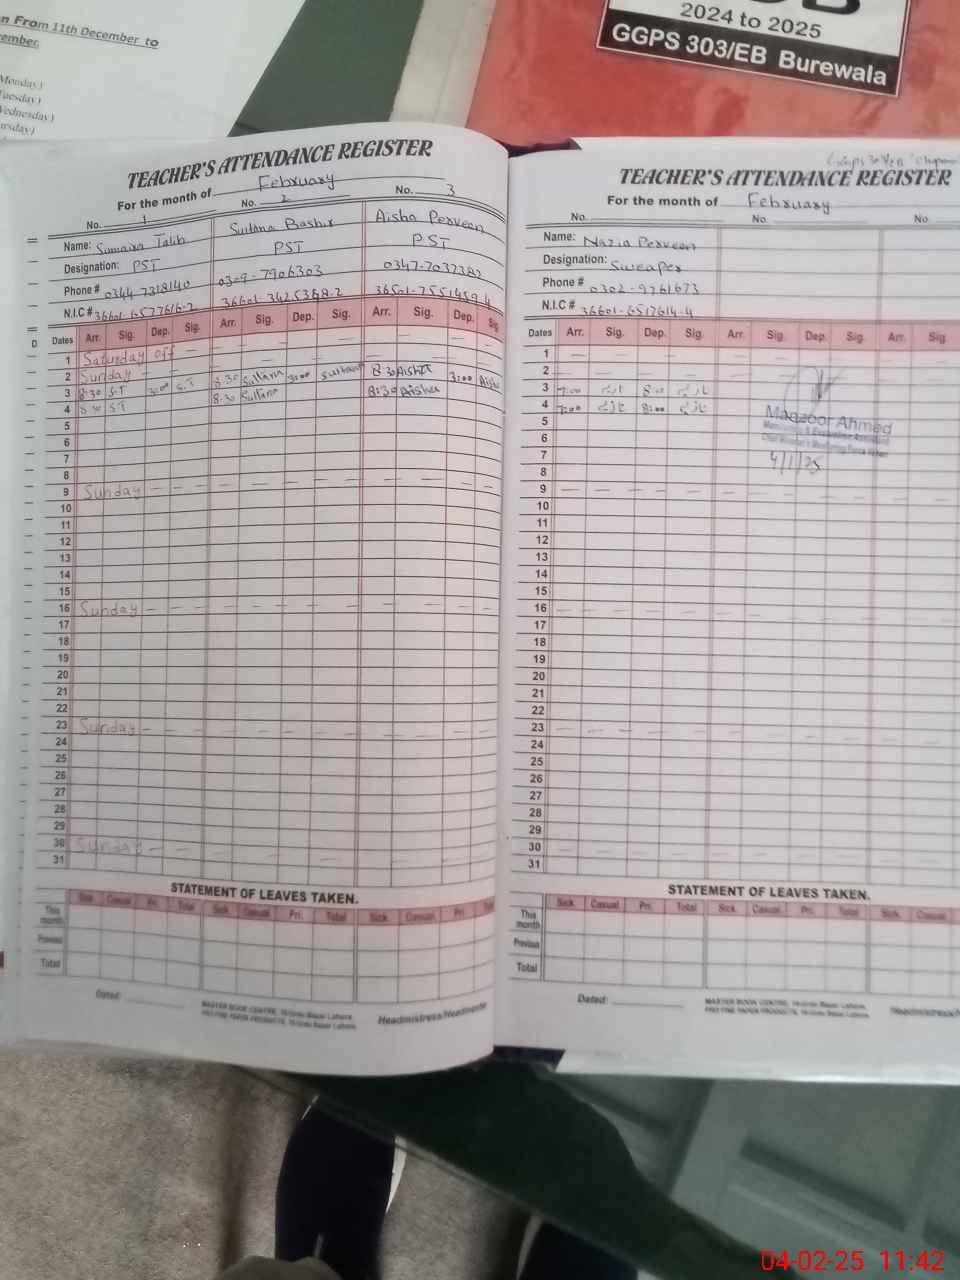 n From 11th December to
ember.
Monday)
Tuesday)
Wednesday)
ursday)
2024 to 2025
GGPS 303/EB Burewala
TEACHER'S ATTENDANCE REGISTER
For the month of February
No. 1 No. 2 No. 3
Name: Sumaira Talib Sultana Bashir Aisha Perveen
Designation: PST PST PST
Phone # 0344-7318140 0309-7906303 0347-7037382
N.I.C # 36601-6577616-2 36601-3425368-2 36501-7551459-4
Dates Arr. Sig. Dep. Sig. Arr. Sig. Dep. Sig. Arr. Sig. Dep. Sig.
1 Saturday off — — — — —
2 Sunday — — — — —
3 8:30 S.T 3:00 S.T 8:30 Sultana 3:00 Sultana 8:30 Aisha 3:00 Aisha
4 8:30 S.T 8:30 Sultana 8:30 Aisha
5
6
7
8
9 Sunday — — — — — — — — — —
10
11
12
13
14
15
16 Sunday — — — — — — — — — —
17
18
19
20
21
22
23 Sunday —
24
25
26
27
28
29
30 Sunday — — — — — — — — — —
31
STATEMENT OF LEAVES TAKEN.
Sick Casual Pri. Total Sick Casual Pri. Total Sick Casual Pri. Total
This month
Previous
Total
Dated:
MASTER BOOK CENTRE, 19-Urdu Bazar Lahore.
PRO FINE PAPER PRODUCTS, 19-Urdu Bazar Lahore.
Headmistress/Headmaster
TEACHER'S ATTENDANCE REGISTER
For the month of February
No. No. No.
Name: Nazia Perveen
Designation: Sweaper
Phone # 0302-9761673
N.I.C # 36601-6517614-4
Dates Arr. Sig. Dep. Sig. Arr. Sig. Dep. Sig. Arr. Sig.
1 — — — — — — —
2 — — — — — —
3 7:00 نازیہ 8:00 نازیہ
4 7:00 نازیہ 8:00 نازیہ
Maqzoor Ahmed
Monitoring & Evaluation Assistant
4/1/25
5
6
7
8
9 — — — — — — — — — —
10
11
12
13
14
15
16 — — — — — — — — — —
17
18
19
20
21
22
23 — — — — — — — — — —
24
25
26
27
28
29
30 — — — — — — — — — —
31
STATEMENT OF LEAVES TAKEN.
Sick Casual Pri. Total Sick Casual Pri. Total Sick Casual
This month
Previous
Total
Dated:
MASTER BOOK CENTRE, 19-Urdu Bazar Lahore.
PRO FINE PAPER PRODUCTS, 19-Urdu Bazar Lahore.
04-02-25 11:42